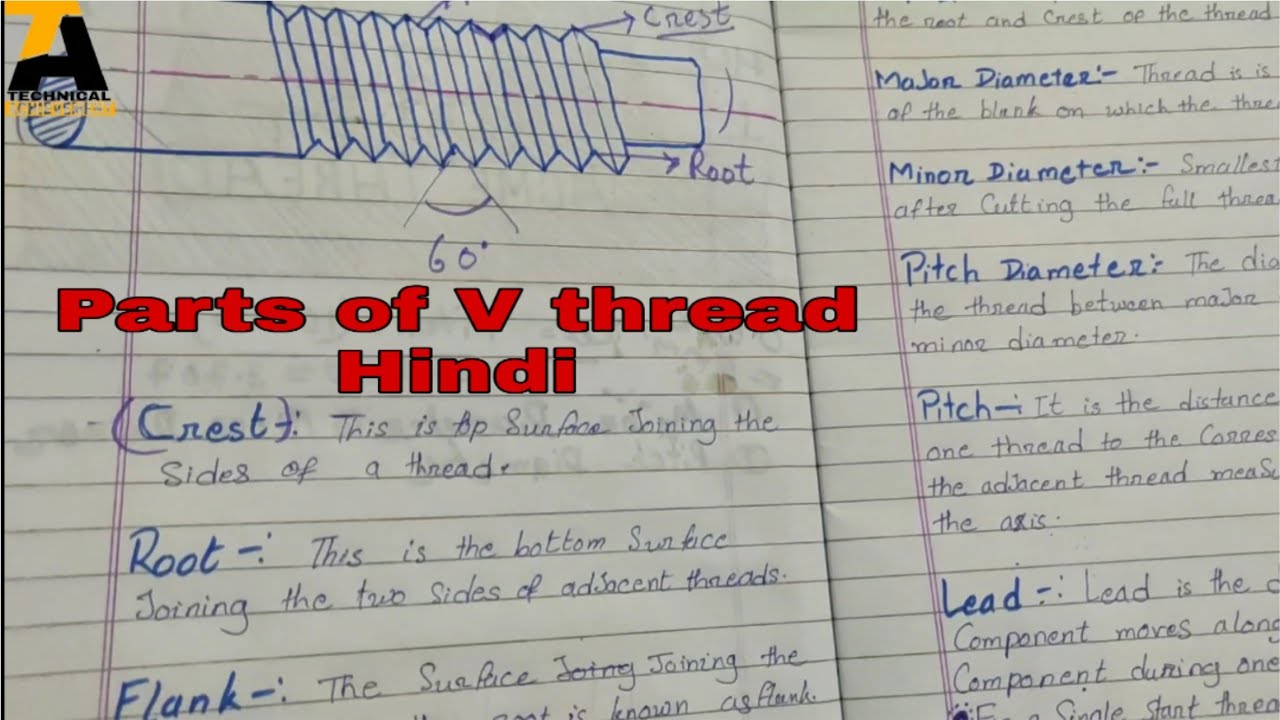 TECHNICAL
Crest
Root
60°
Parts of V thread
Hindi
(Crest):- This is top Surface Joining the
Sides of a thread.
Root -: This is the bottom Surface
Joining the two Sides of adjacent threads.
Flank -: The Surface Joing Joining the
is known as flank.
the root and Crest of the thread
Major Diameter:- Thread is is
of the blank on which the thre
Minor Diameter:- Smallest
after Cutting the full threa
Pitch Diameter:- The dia
the thread between major
minor diameter.
Pitch -: It is the distance
one thread to the Corres
the adjacent thread measu
the axis.
Lead -: Lead is the
Component moves along
Component during one
Single Start threa